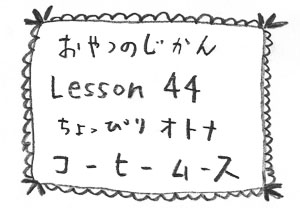 おやつのじかん
Lesson 44
ちょっぴり オトナ
コーヒームース